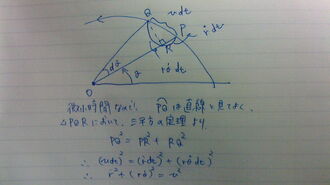 Q
v dt
P
R
ṙ dt
dθ
θ
rθ̇ dt
O
微小時間なので、PQは直線と見てよく
△PQRにおいて、三平方の定理より
PQ² = PR² + RQ²
∴ (vdt)² = (ṙdt)² + (rθ̇dt)²
∴ ṙ² + (rθ̇)² = v²